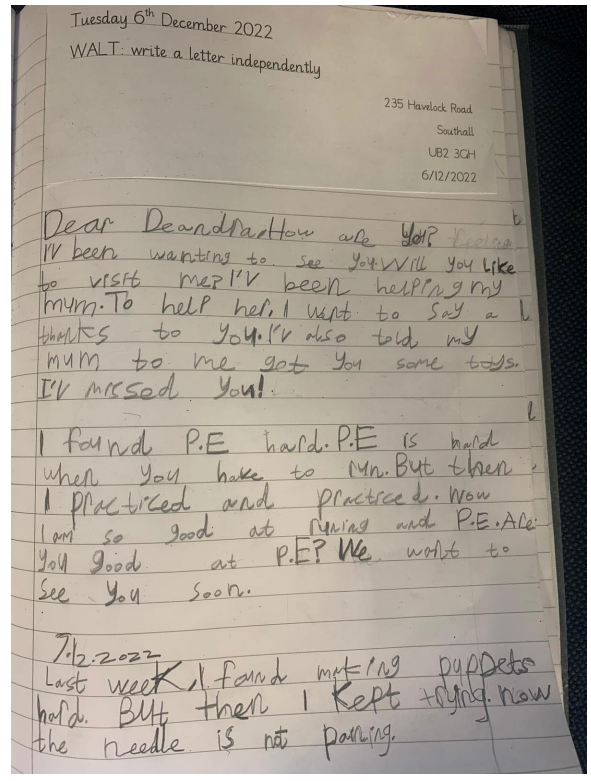 Tuesday 6th December 2022
WALT: write a letter independently
235 Havelock Road
Southall
UB2 3GH
6/12/2022
Dear Deandra, How are you?
I'v been wanting to see you. Will you like
to visit me? I'v been helping my
mum. To help her, I want to say a
thanks to you. I'v also told my
mum to me got you some toys.
I'v missed you!
I found P.E hard. P.E is hard
when you have to run. But then
I practiced and practiced. Now
I am so good at runing and P.E. Are
you good at P.E? We want to
see you soon.
7.12.2022
Last week, I found making puppets
hard. But then I kept trying. now
the needle is not